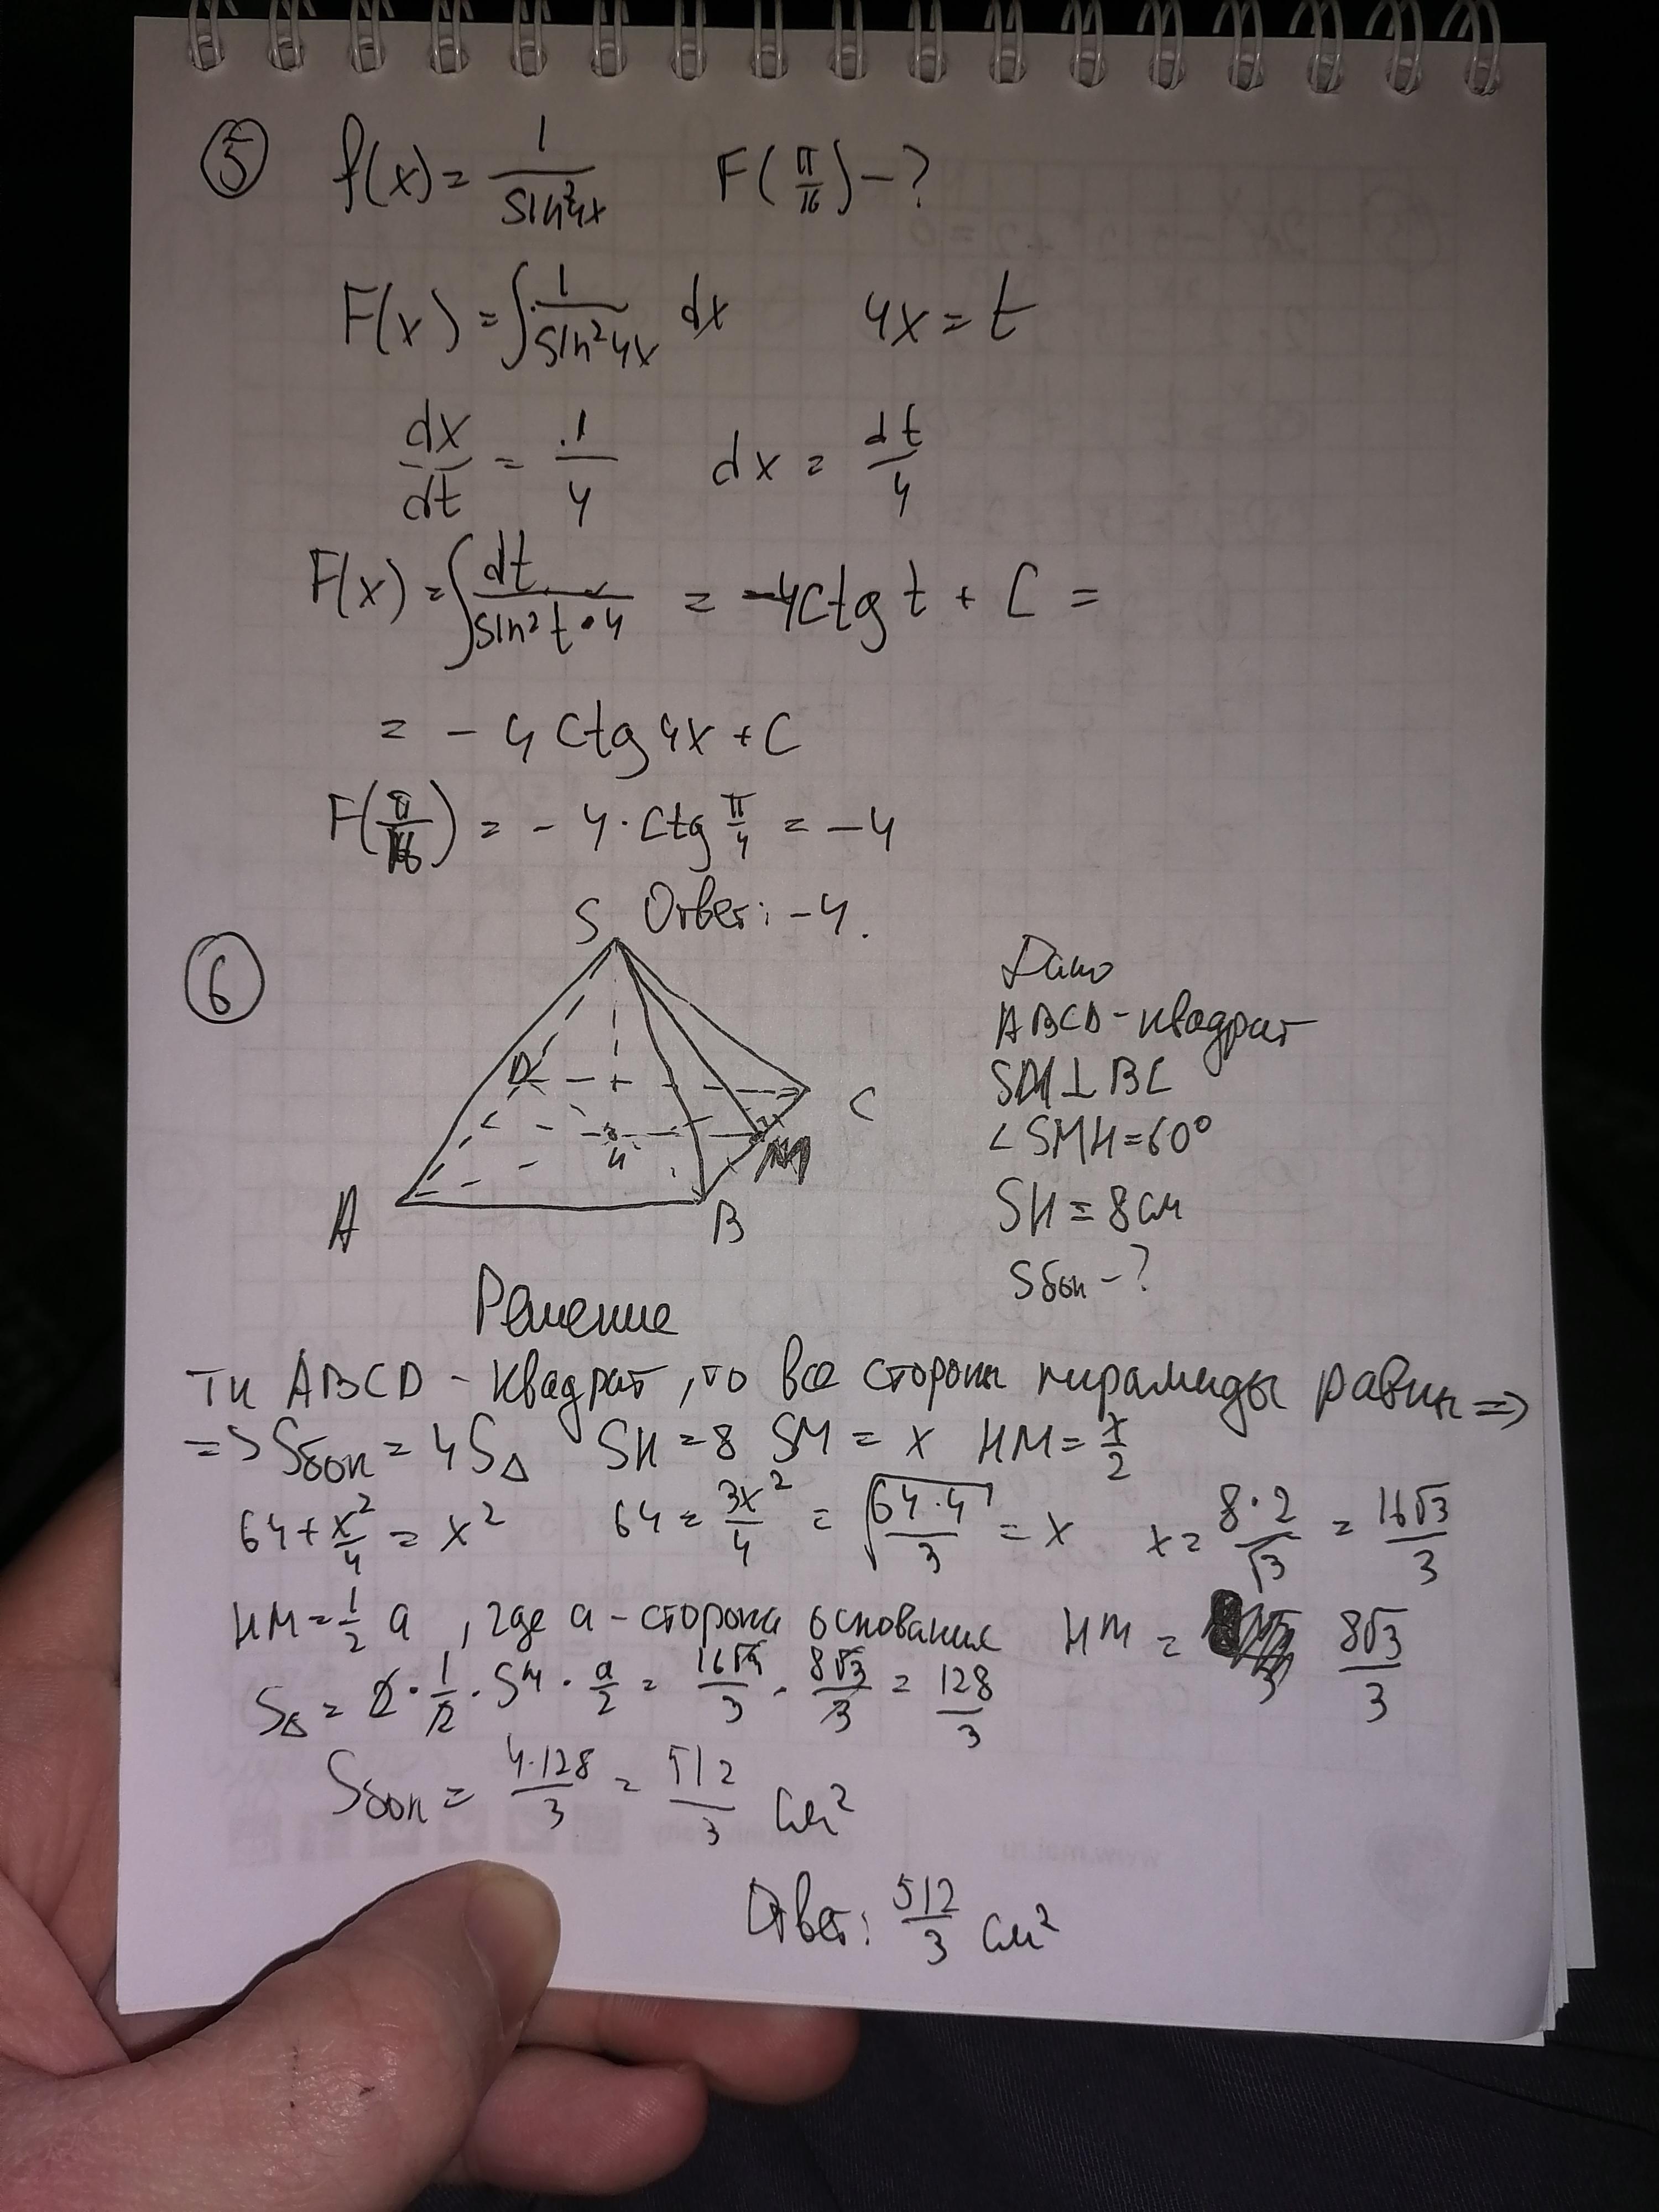 5 f(x) = 1/sin²4x F(π/16) - ?
F(x) = ∫ 1/sin²4x dx 4x = t
dx/dt = 1/4 dx = dt/4
F(x) = ∫ dt/sin²t·4 = -4ctg t + C =
= -4 ctg 4x + C
F(π/16) = -4·ctg π/4 = -4
Ответ: -4.
6
S
D
C
H
M
A
B
Дано
ABCD - квадрат
SM ⊥ BC
∠SMH = 60°
SH = 8 см
Sбок - ?
Решение
Тк ABCD - квадрат, то все стороны пирамиды равны =>
=> Sбок = 4S△ SH = 8 SM = x HM = x/2
64 + x²/4 = x² 64 = 3x²/4 = √(64·4/3) = x x = 8·2/√3 = 16√3/3
HM = 1/2 a, где a - сторона основания HM = 8√3/3
S△ = 2·1/2·SM·a/2 = 16√3/3·8√3/3 = 128/3
Sбок = 4·128/3 = 512/3 см²
Ответ: 512/3 см²